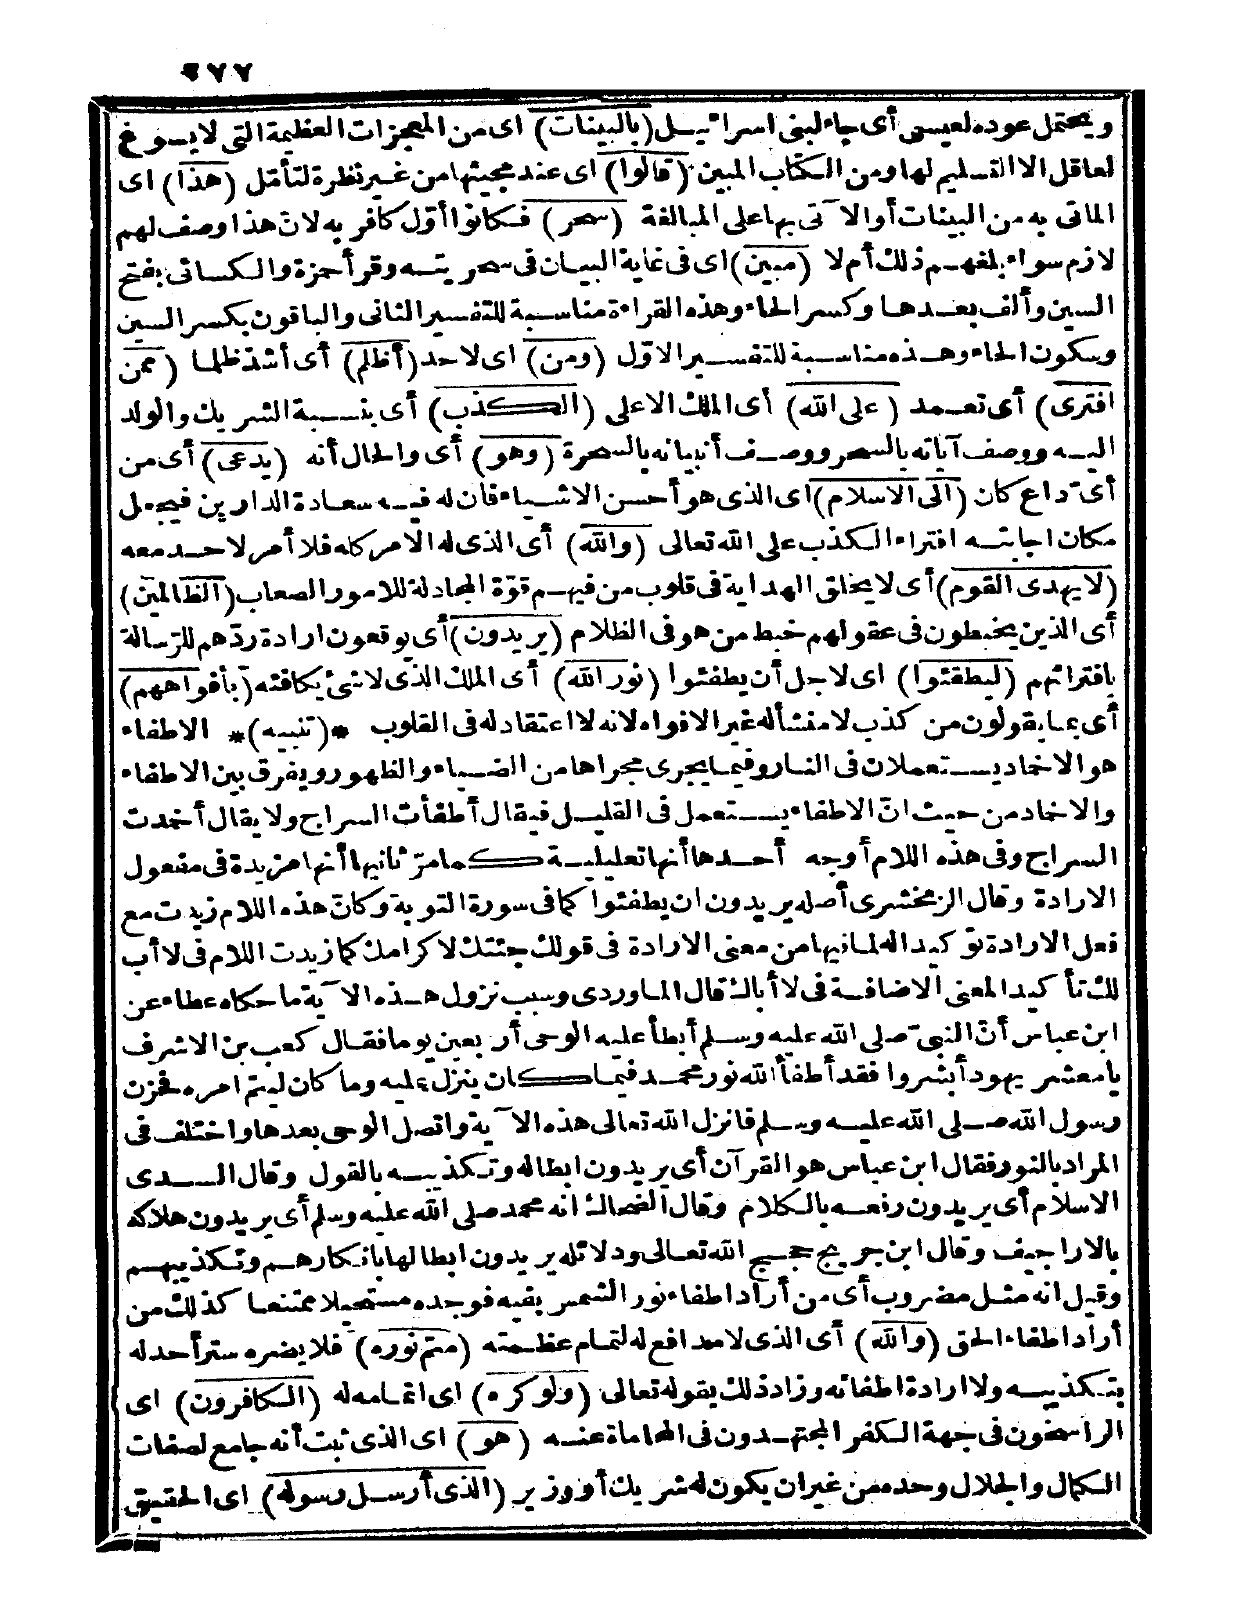 ٢٧٧
ويحتمل عوده لعيسى أى جاء لبنى اسرائيل (بالبينات) اى من المعجزات العظيمة التى لا يسوغ
لعاقل الا التسليم لها ومن الكتاب المبين (قالوا) اى عند مجيئها من غير نظرة لتأمل (هذا) اى
المأتى به من البينات أو الآتى بها على المبالغة (سحر) فكانوا أوّل كافر به لانّ هذا وصف لهم
لازم سواء بلغهم ذلك أم لا (مبين) اى فى غاية البيان فى سحريته وقرأ حمزة والكسائى بفتح
السين وألف بعدها وكسر الحاء وهذه القراءة مناسبة للتفسير الثانى والباقون بكسر السين
وسكون الحاء وهذه مناسبة للتفسير الاوّل (ومن) اى لا حد (أظلم) أى أشدّ ظلما (ممن
افترى) أى تعمد (على الله) أى الملك الاعلى (الكذب) أى بنسبة الشريك والولد
اليه ووصف آياته بالسحر ووصف أنبيائه بالسحرة (وهو) أى والحال أنه (يدعى) أى من
أىّ داع كان (الى الاسلام) اى الذى هو أحسن الاشياء فان له فيه سعادة الدارين فيجعل
مكان اجابته افتراء الكذب على الله تعالى (والله) أى الذى له الامر كله فلا أمر لاحد معه
(لا يهدى القوم) أى لا يخلق الهداية فى قلوب من فيهم قوّة المجادلة للامور الصعاب (الظالمين)
أى الذين يخبطون فى عقولهم خبط من هو فى الظلام (يريدون) أى يوقعون ارادة ردّهم للرّسالة
بافترائهم (ليطفئوا) اى لاجل أن يطفئوا (نور الله) أى الملك الذى لا شئ يكافئه (بأفواههم)
أى بما يقولون من كذب لا منشأ له غير الافواه لانه لا اعتقاد له فى القلوب *(تنبيه)* الاطفاء
هو الاخماد يستعملان فى النار وفيما يجرى مجراها من الضياء والظهور ويفرق بين الاطفاء
والاخماد من حيث انّ الاطفاء يستعمل فى القليل فيقال أطفأت السراج ولا يقال أخمدت
السراج وفى هذه اللام أوجه أحدها أنها تعليلية كما مرّ ثانيها أنها مزيدة فى مفعول
الارادة وقال الزمخشرى أصله يريدون ان يطفئوا كما فى سورة التوبة وكانّ هذه اللام زيدت مع
فعل الارادة توكيدا له لما فيها من معنى الارادة فى قولك جئتك لاكرامك كما زيدت اللام فى لا أب
لك تأكيدا لمعنى الاضافة فى لا أباك قال الماوردى وسبب نزول هذه الآية ما حكاه عطاء عن
ابن عباس أنّ النبىّ صلى الله عليه وسلم أبطأ عليه الوحى أربعين يوما فقال كعب بن الاشرف
يا معشر يهود أبشروا فقد أطفأ الله نور محمد فيما كان ينزل عليه وما كان ليتمّ امره فحزن
رسول الله صلى الله عليه وسلم فانزل الله تعالى هذه الآية واتصل الوحى بعدها واختلف فى
المراد بالنور فقال ابن عباس هو القرآن أى يريدون ابطاله وتكذيبه بالقول وقال السدى
الاسلام أى يريدون رفعه بالكلام وقال الضحاك انه محمد صلى الله عليه وسلم أى يريدون هلاكه
بالاراجيف وقال ابن جريج حجج الله تعالى ودلائله يريدون ابطالها بانكارهم وتكذيبهم
وقيل انه مثل مضروب أى من أراد اطفاء نور الشمس بفيه فوجده مستحيلا ممتنعا كذلك من
أراد اطفاء الحق (والله) أى الذى لا مدافع له لتمام عظمته (متم نوره) فلا يضره ستر أحد له
بتكذيبه ولا ارادة اطفائه وزاد ذلك بقوله تعالى (ولو كره) اى اتمامه له (الكافرون) اى
الراسخون فى جهة الكفر المجتهدون فى المحاماة عنه (هو) اى الذى ثبت أنه جامع لصفات
الكمال والجلال وحده من غير ان يكون له شريك أو وزير (الذى أرسل رسوله) اى الحقيق